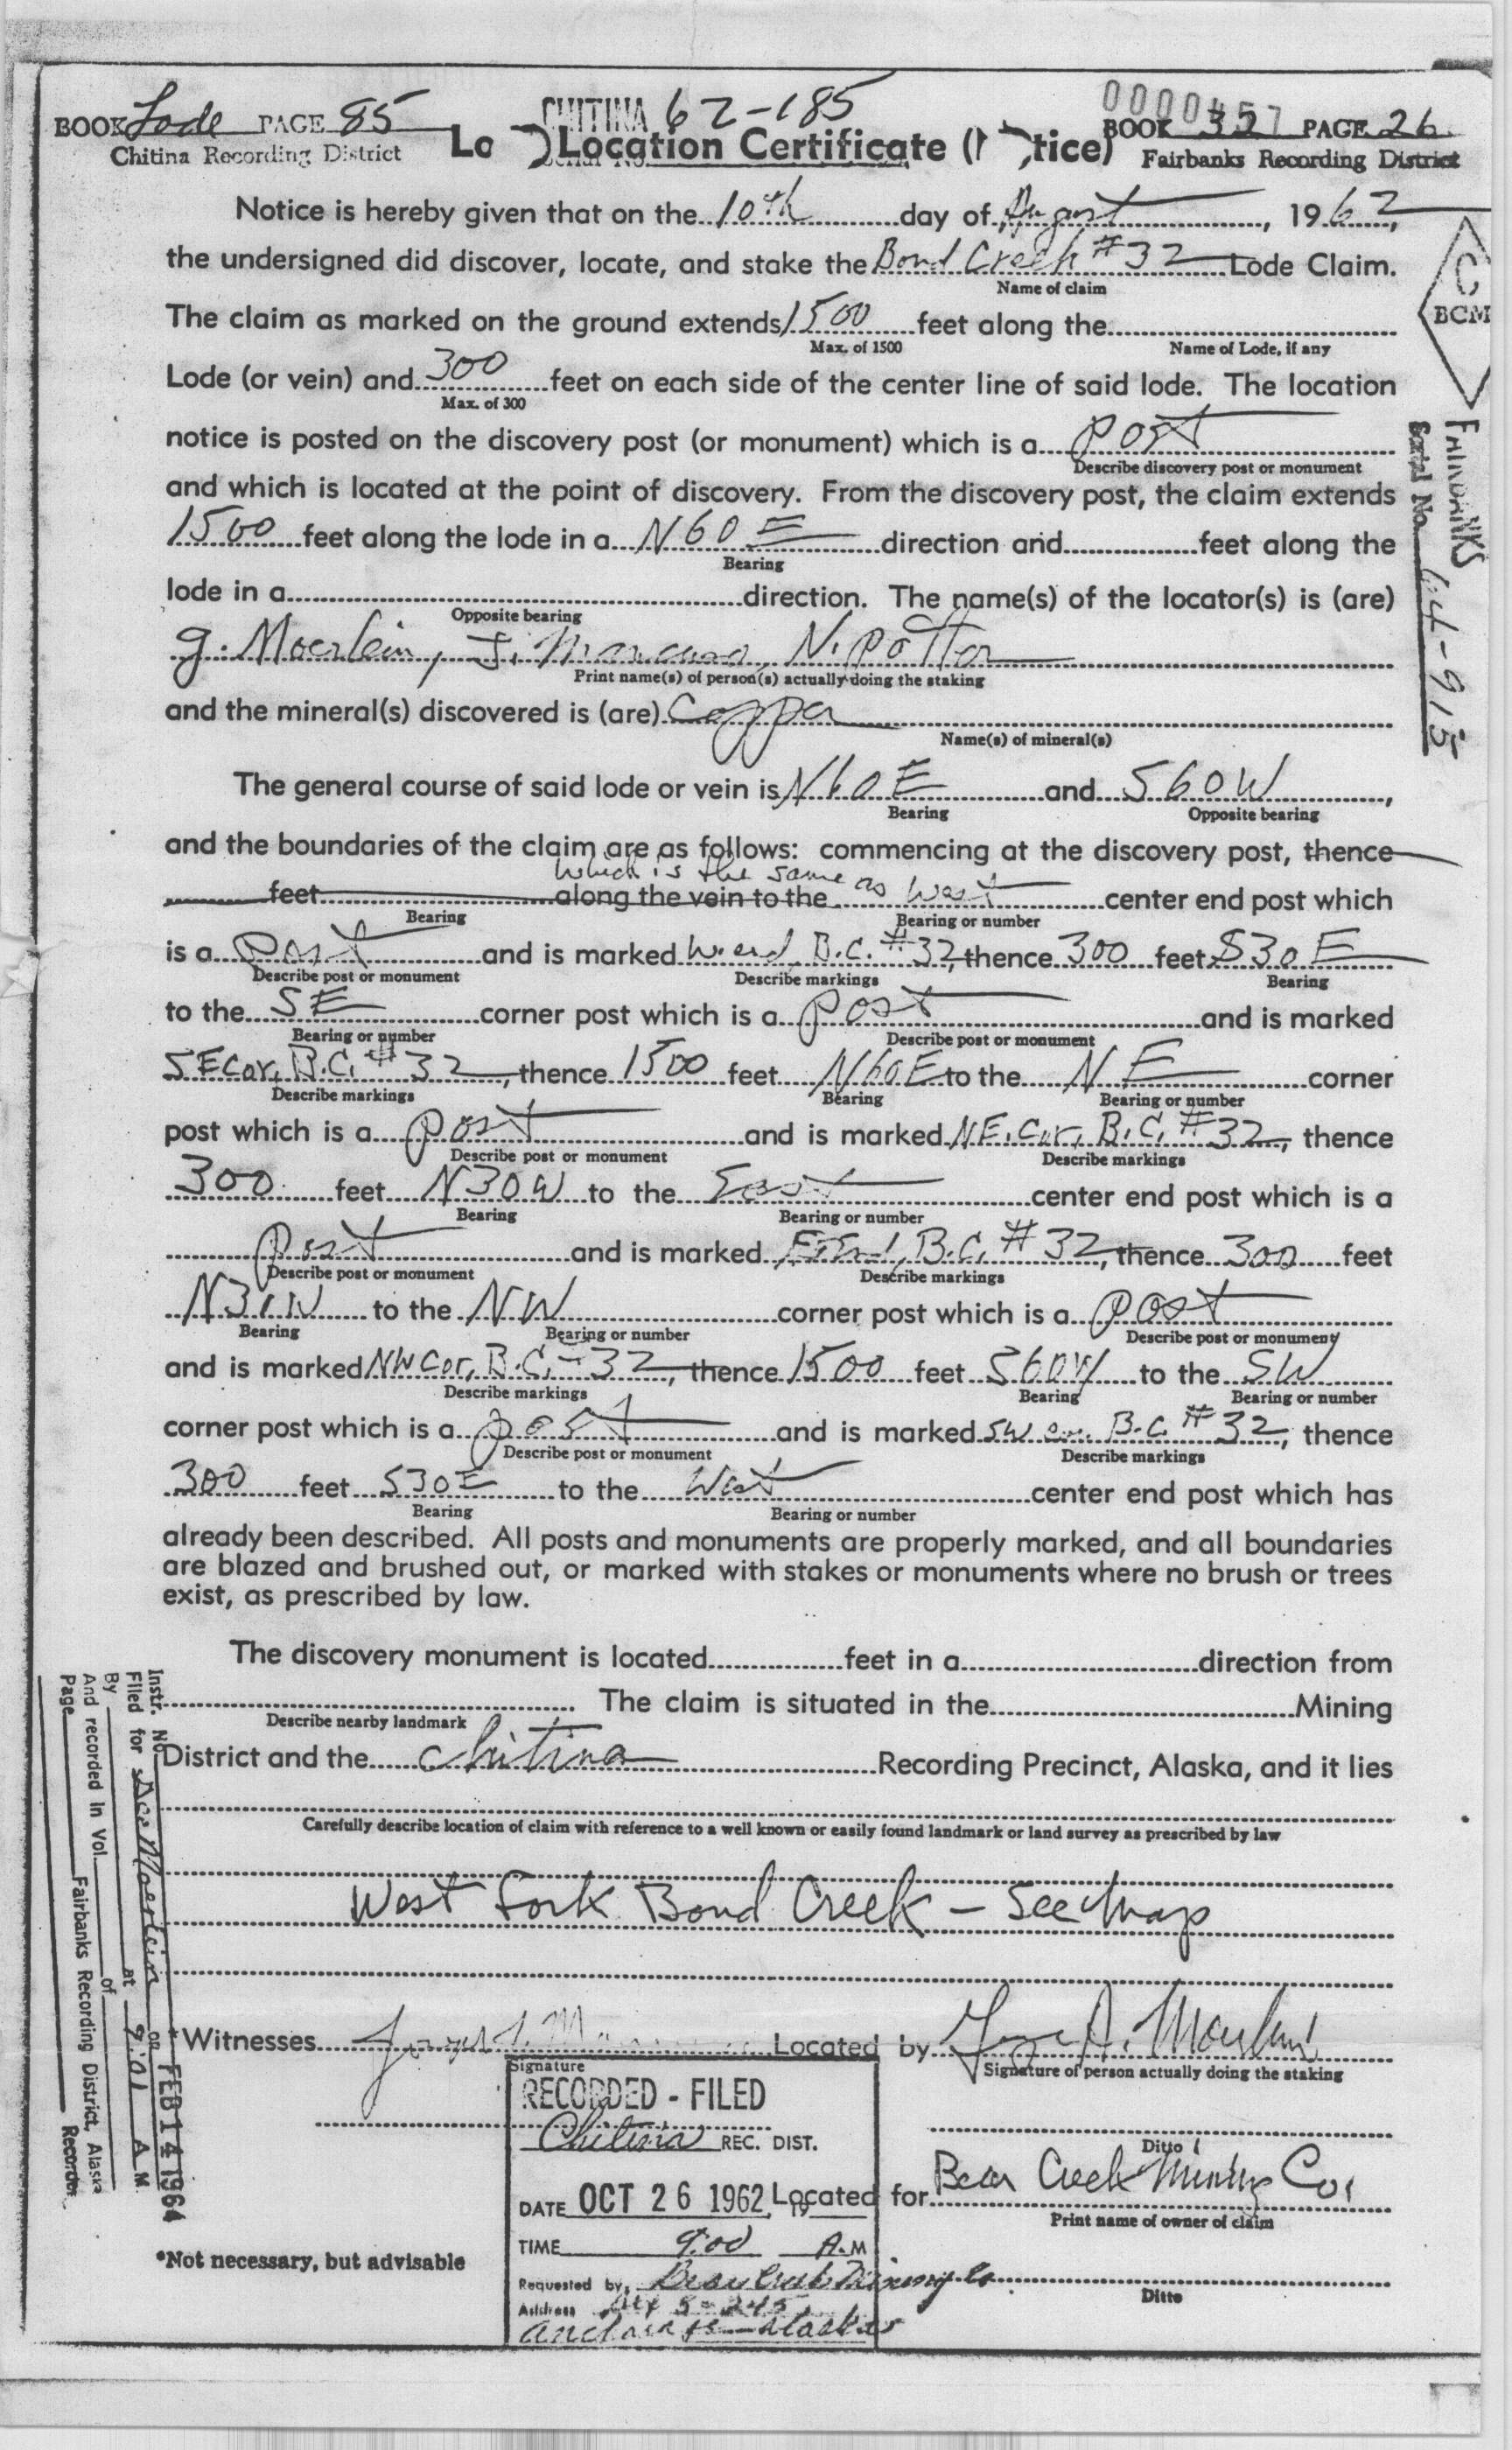 BOOK Lode PAGE 85
Chitina Recording District
CHITINA 62-185
0000457
BOOK PAGE 26
Fairbanks Recording District
Lo Location Certificate (N tice)
Notice is hereby given that on the 10th day of August, 1962,
the undersigned did discover, locate, and stake the Bond Creek #32 Lode Claim.
Name of claim
The claim as marked on the ground extends 1500 feet along the
Max. of 1500 Name of Lode, if any
Lode (or vein) and 300 feet on each side of the center line of said lode. The location
Max. of 300
notice is posted on the discovery post (or monument) which is a post
Describe discovery post or monument
and which is located at the point of discovery. From the discovery post, the claim extends
1500 feet along the lode in a N60E direction and feet along the
Bearing
lode in a direction. The name(s) of the locator(s) is (are)
Opposite bearing
G. Moerlein, J. Mancuso, N. Potter
Print name(s) of person(s) actually doing the staking
and the mineral(s) discovered is (are) Copper
Name(s) of mineral(s)
The general course of said lode or vein is N60E and S60W,
Bearing Opposite bearing
and the boundaries of the claim are as follows: commencing at the discovery post, thence
which is the same as
feet along the vein to the West center end post which
Bearing Bearing or number
is a Post and is marked W. end B.C. #32, thence 300 feet S30E
Describe post or monument Describe markings Bearing
to the SE corner post which is a post and is marked
Bearing or number Describe post or monument
SE Cor, B.C. #32, thence 1500 feet N60E to the NE corner
Describe markings Bearing Bearing or number
post which is a post and is marked NE. Cor, B.C. #32, thence
Describe post or monument Describe markings
300 feet N30W to the East center end post which is a
Bearing Bearing or number
Post and is marked E. End, B.C. #32, thence 300 feet
Describe post or monument Describe markings
N31W to the NW corner post which is a post
Bearing Bearing or number Describe post or monument
and is marked NW Cor, B.C. - 32, thence 1500 feet S60W to the SW
Describe markings Bearing Bearing or number
corner post which is a post and is marked SW cor B.C. #32, thence
Describe post or monument Describe markings
300 feet S30E to the West center end post which has
Bearing Bearing or number
already been described. All posts and monuments are properly marked, and all boundaries
are blazed and brushed out, or marked with stakes or monuments where no brush or trees
exist, as prescribed by law.
The discovery monument is located feet in a direction from
The claim is situated in the Mining
Describe nearby landmark
District and the Chitina Recording Precinct, Alaska, and it lies
Carefully describe location of claim with reference to a well known or easily found landmark or land survey as prescribed by law
West Fork Bond Creek - See Map
*Witnesses Located by
Signature Signature of person actually doing the staking
RECORDED - FILED
Chitina REC. DIST.
DATE OCT 26 1962, 19
TIME 9:00 A.M
Requested by Bear Creek Mining Co
Address
Anchorage - Alaska
Ditto
Located for Bear Creek Mining Co.
Print name of owner of claim
Ditto
*Not necessary, but advisable
C
BCM
FAIRBANKS
Serial No. 64-915
Instr. No.
Filed for Geo Moerlein on FEB 14 1964
By at 9:01 A M.
And recorded in Vol. of
Page Fairbanks Recording District, Alaska
Recorder